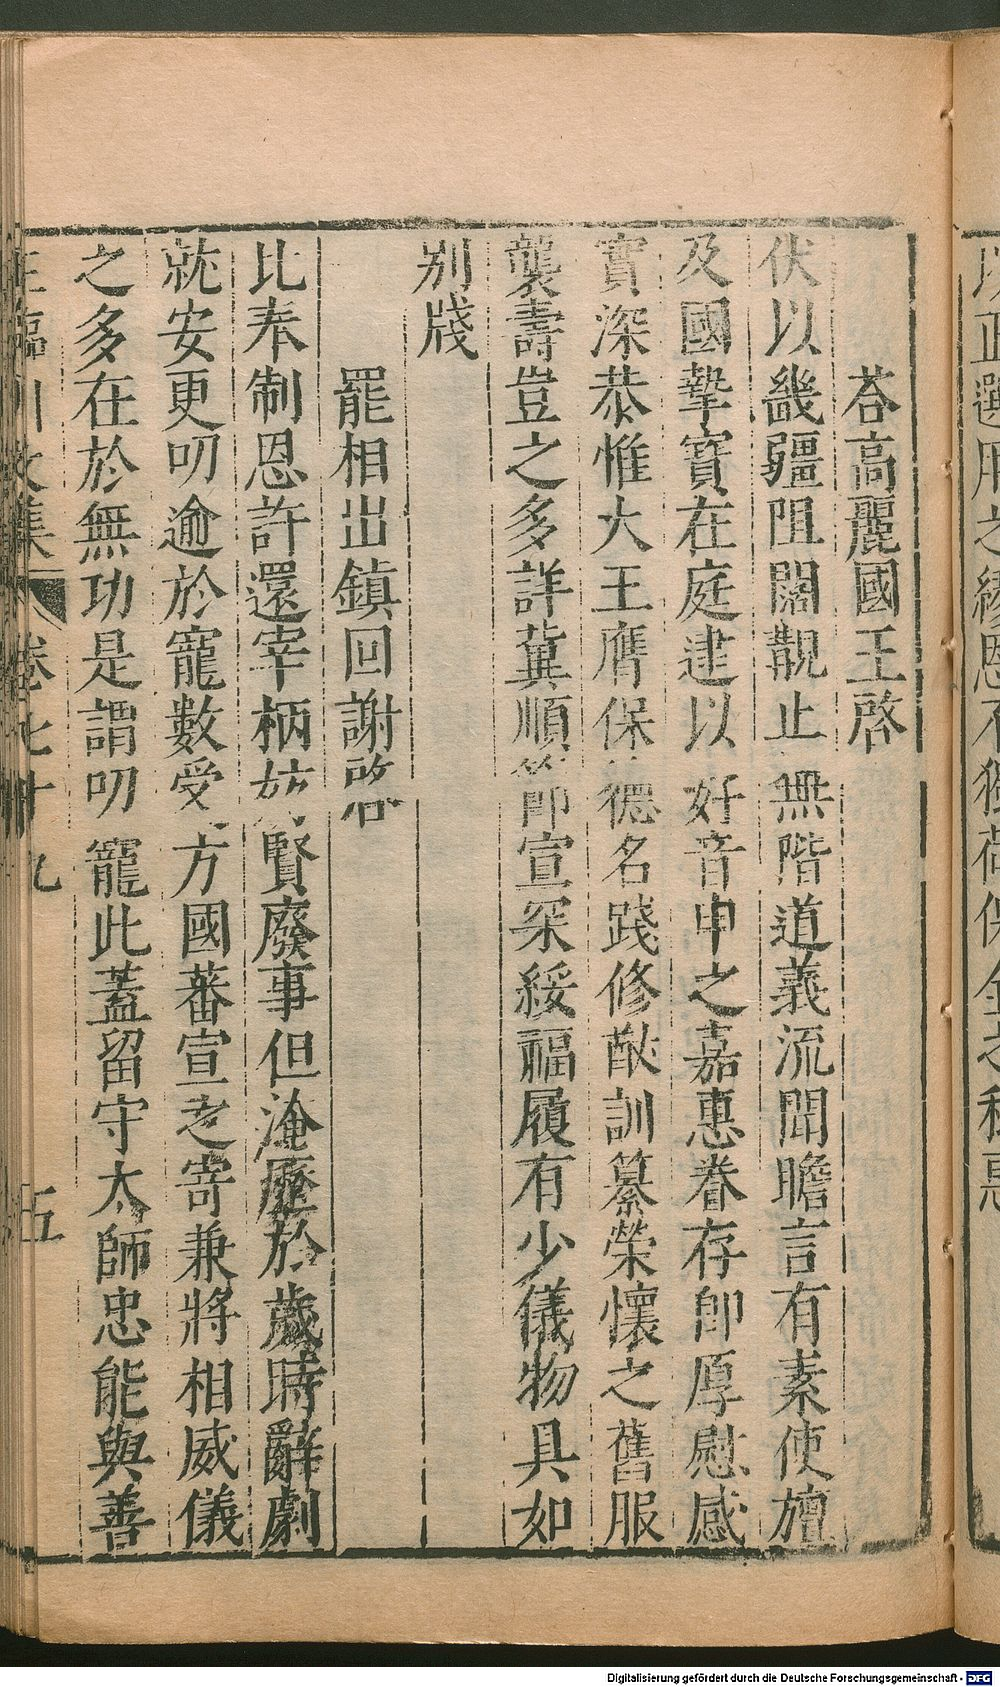 荅高麗國王啓
伏以畿疆阻闊覯止無階道義流聞瞻言有素使旜
及國摯寳在庭建以好音申之嘉惠眷存即厚慰感
實深恭惟大王膺保德名踐修猷訓纂榮懷之舊服
襲壽豈之多詳冀順節宣罙綏福履有少儀物具如
别牋
罷相出鎮回謝啓
比奉制恩許還宰柄妨賢廢事但淹歷於歲時辭劇
就安更叨逾於寵數受方國蕃宣之寄兼將相威儀
之多在於無功是謂叨寵此蓋留守太師忠能與善
王臨川文集 卷七十九 五
Digitalisierung gefördert durch die Deutsche Forschungsgemeinschaft - DFG